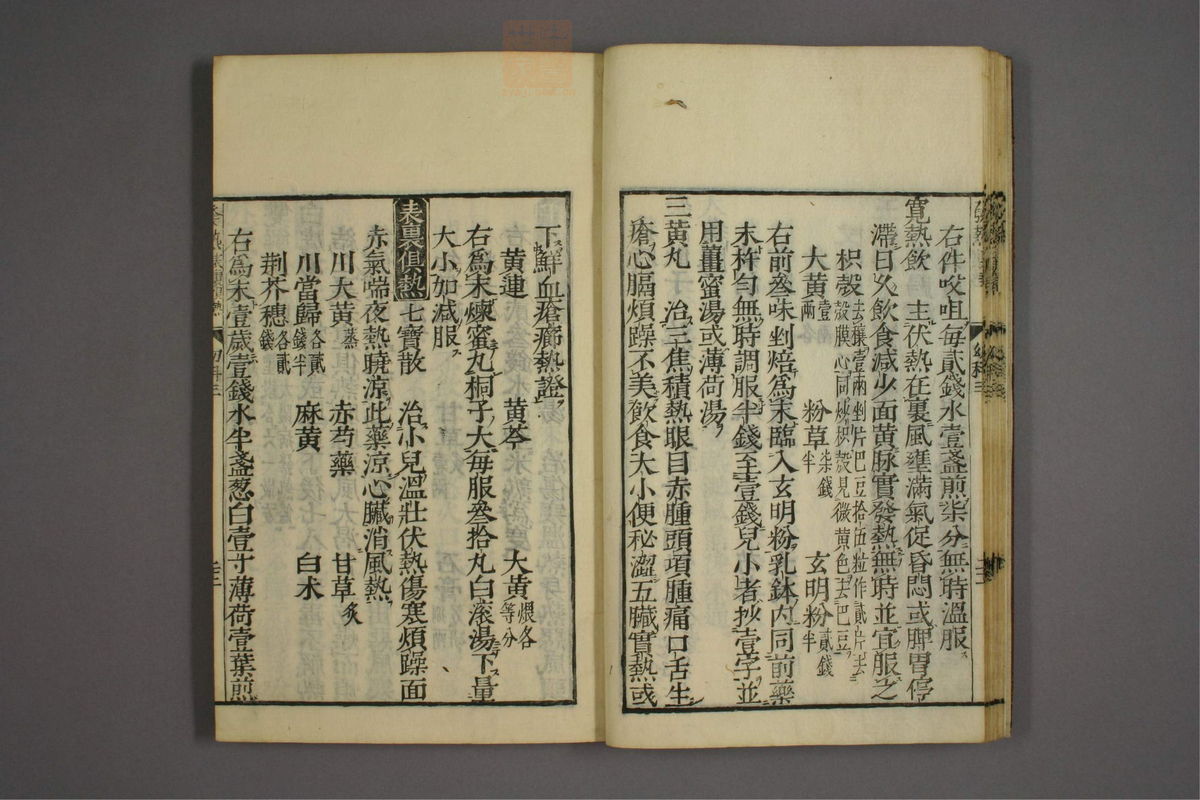 右件㕮咀每貳錢水壹盞煎柒分無時溫服
寬熱飲 主伏熱在裏風壅滿氣促昏悶或脾胃停
滯日久飲食減少面黃脉實發熱無時並宜服之
枳殼去穰壹兩剉片巴豆拾伍粒作貳片去殼膜心同炒枳殼見微黃色去巴豆
大黃壹兩 粉草柒錢半 玄明粉貳錢半
右前叄味剉焙爲末臨入玄明粉乳鉢內同前藥
末杵勻無時調服半錢至壹錢兒小者抄壹字並
用薑蜜湯或薄荷湯
三黃丸 治三焦積熱眼目赤腫頭項腫痛口舌生
瘡心膈煩躁不美飲食大小便秘澀五臟實熱或
下鮮血瘡癤熱證
黃連 黃芩 大黃煨各等分
右爲末煉蜜丸桐子大每服叄拾丸白滾湯下量
大小加減服
表裏俱熱 七寶散 治小兒溫壯伏熱傷寒煩躁面
赤氣喘夜熱曉涼此藥涼心臟消風熱
川大黃蒸 赤芍藥 甘草炙
川當歸各貳錢半 麻黃 白术
荆芥穗各貳錢
右爲末壹歲壹錢水半盞葱白壹寸薄荷壹葉煎
幼科三